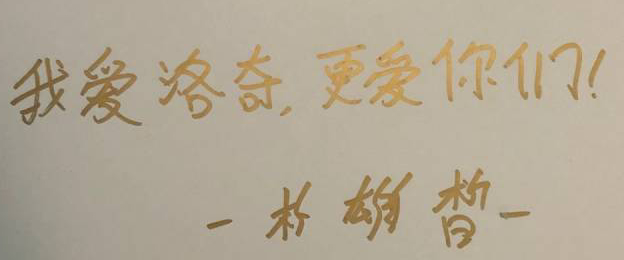 我爱洛奇,更爱你们!
-朴雄晳-